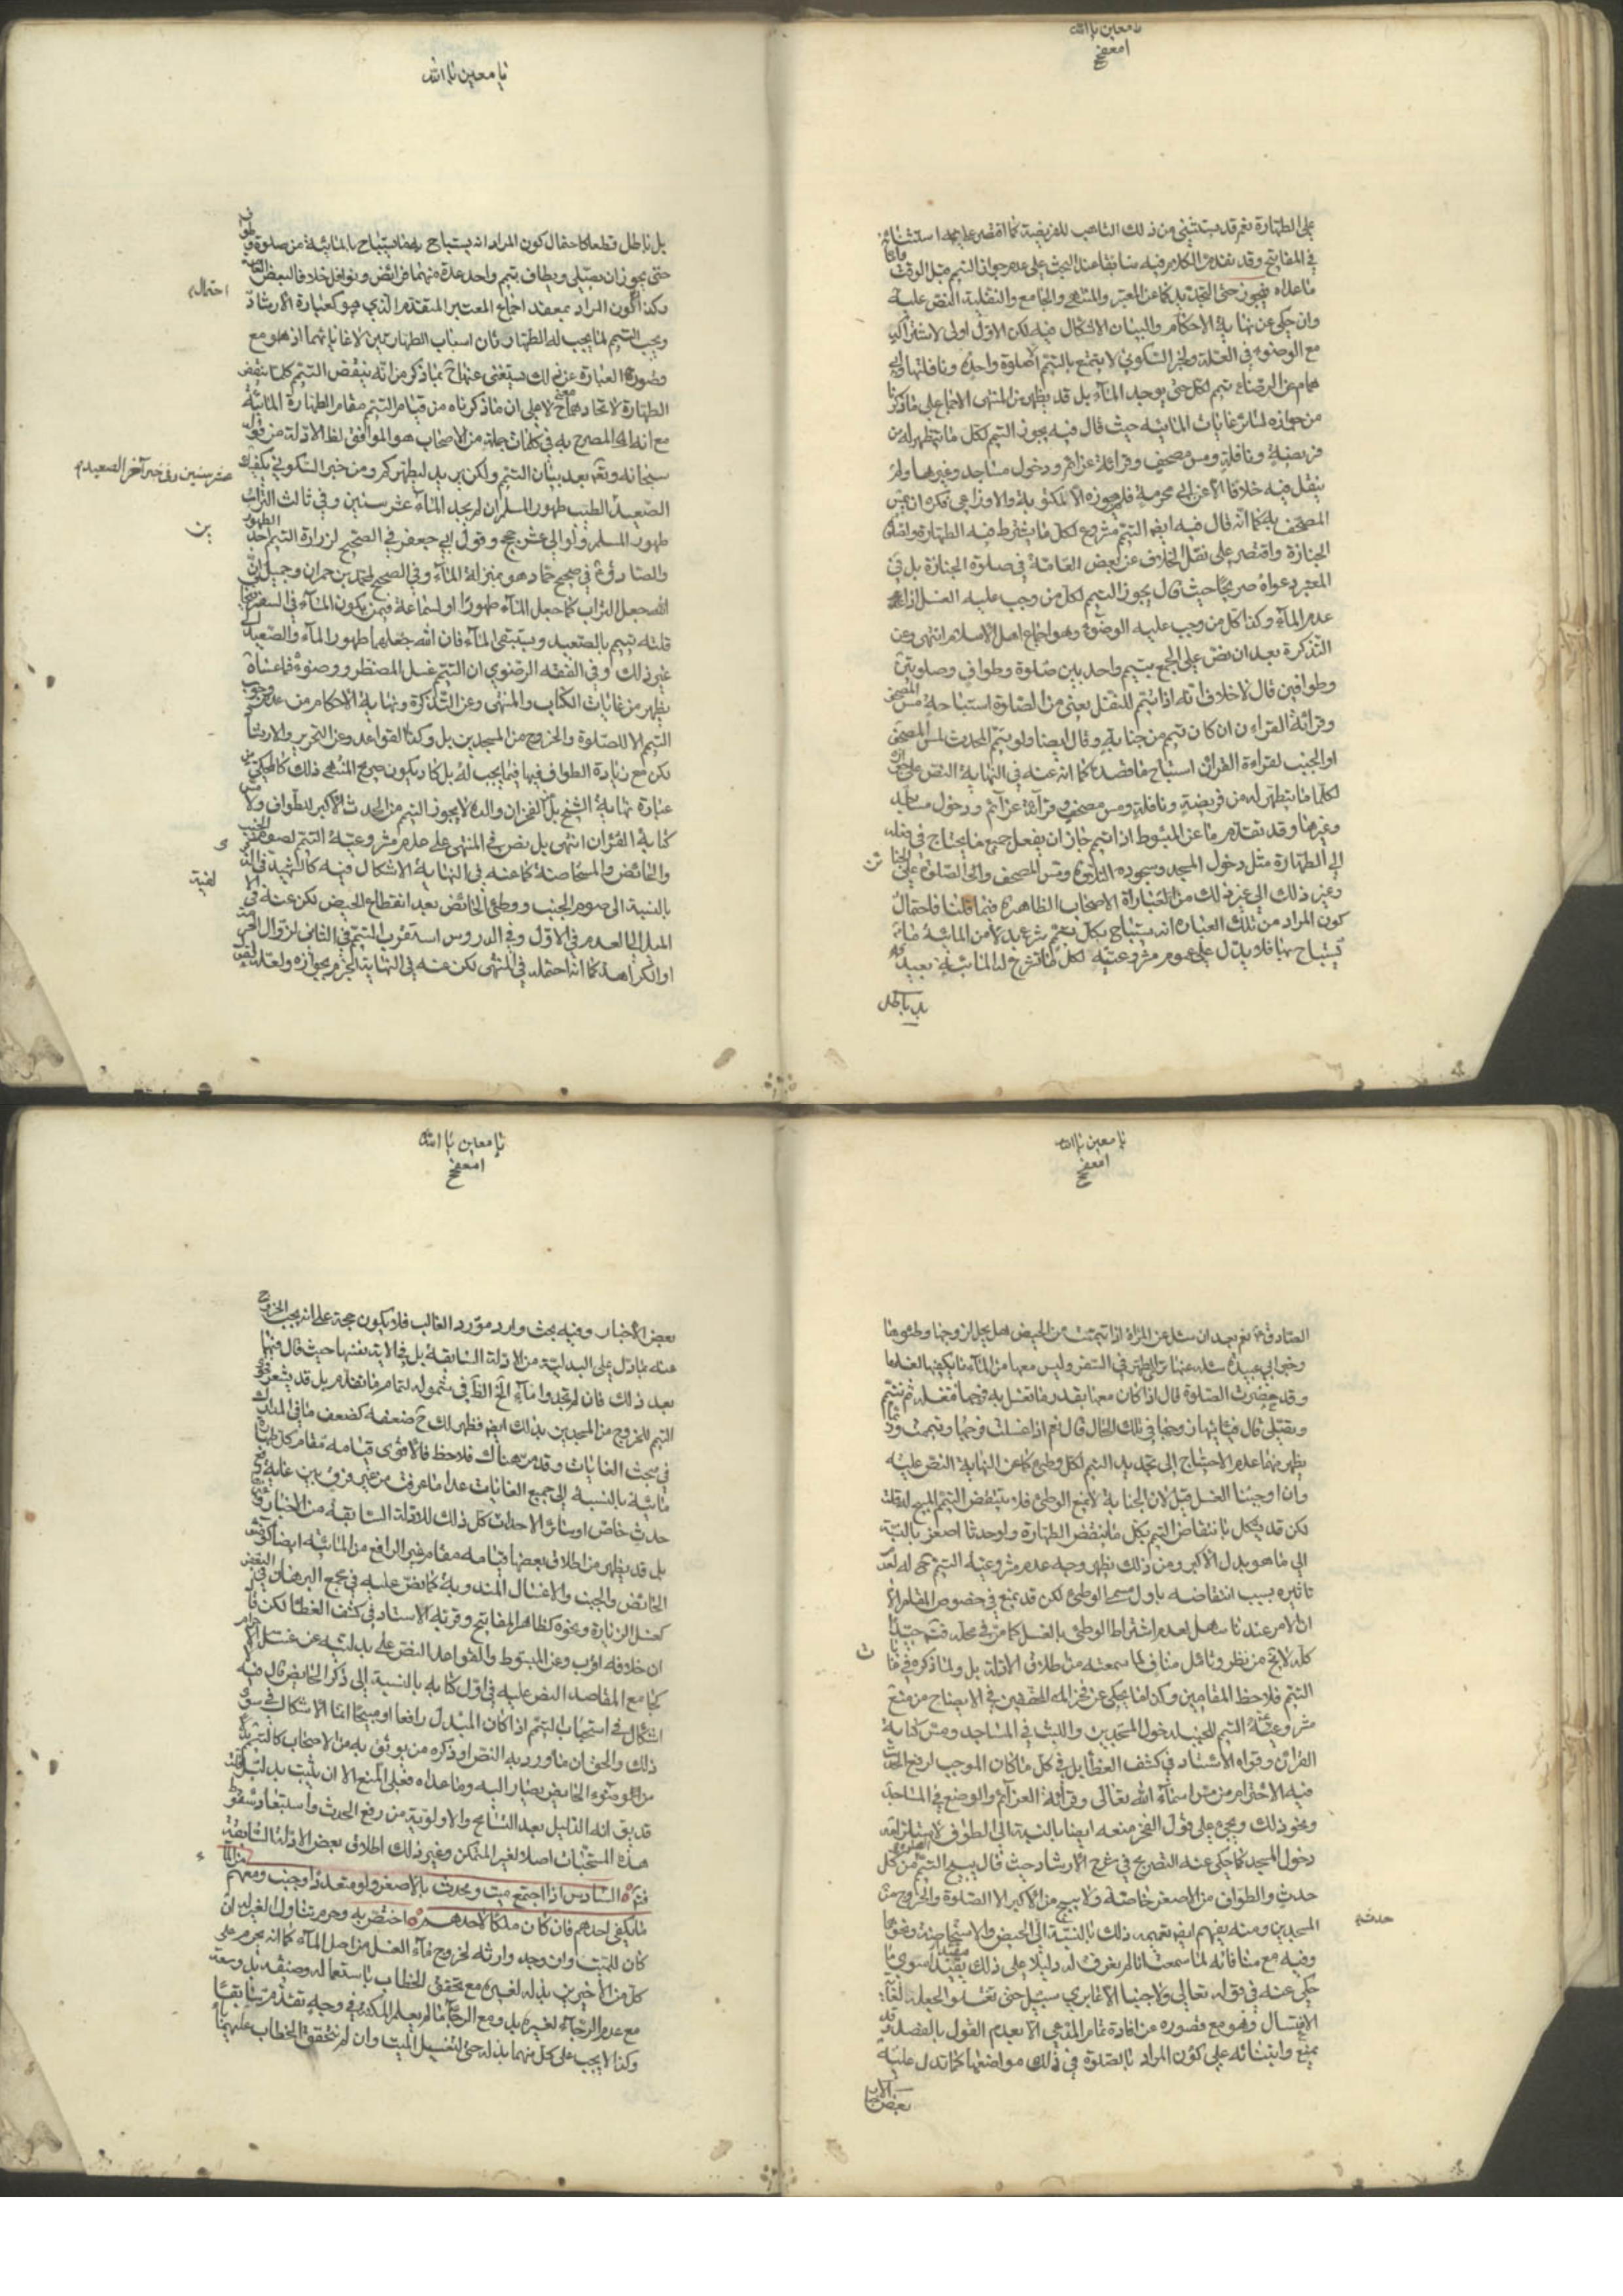 يا معين يا الله
على الطهارة نعم قد يستثنى من ذلك التأهب للفريضة كما اقتصر على استثنائه
في المفاتيح وقد تقدم الكلام فيه سابقا عند البحث على عدم جواز التيمم قبل الوقت واما
ما عداه فيجوز حتى التجديد كما عن المعتبر والمنتهى والجامع والنفلية النص عليه
وان حكى عن نهاية الاحكام والبيان الاشكال فيه لكن الاول اولى لاشتراكه
مع الوضوء في العلة ولخبر السكوني لا يتمتع بالتيمم الا صلوة واحدة ونافلتها وابي
همام عن الرضا يتيمم لكل حتى يوجد الماء بل قد يظهر من المنتهى الاجماع على ما ذكرنا
من جوازه لسائر غايات المائية حيث قال فيه يجوز التيمم لكل ما يتطهر له من
فريضة ونافلة ومس مصحف وقرائة عزائم ودخول مساجد وغيرها ولم
ينقل فيه خلافا الا عن ابي مخرمة فلم يجوزه الا لمكتوبة والاوزاعي فكره ان يمس
المصحف به كما انه قال فيه ايضا التيمم مشروع لكل ما يشترط فيه الطهارة ولصلوة
الجنازة واقتصر على نقل الخلاف عن بعض العامة في صلوة الجنازة بل في
المعتبر دعواه صريحا حيث قال يجوز التيمم لكل من وجب عليه الغسل اذا
عدم الماء وكذا كل من وجب عليه الوضوء وهو اجماع اهل الاسلام انتهى وعن
التذكرة بعد ان نص على الجمع بتيمم واحد بين صلوة وطواف وصلوتين
وطوافين قال لا خلاف انه اذا تيمم للنفل يعنى من الصلوة استباحة مس المصحف
وقرائة القراءن ان كان تيمم من جنابة وقال ايضا ولو تيمم المحدث لمس المصحف
او الجنب لقراءة القرائن استباح ما قصده كما انه عنه في النهاية النص على جوازه
لكل ما يتطهر له من فريضة ونافلة ومس مصحف وقرآئة عزآئم ودخول مساجد
وغيرها وقد تقدم ما عن المبسوط اذا تيمم جاز ان يفعل جميع ما يحتاج في فعله
إلى الطهارة مثل دخول المسجد وسجود التلاوة ومس المصحف والصلوة على الجنائز
وغير ذلك الى غير ذلك من العبارات الاصحاب الظاهرة فيما قلنا فاحتمال
كون المراد من تلك العبارة انه يستباح بكل تيمم شرع بدلا من المائية ما
يستباح بها فلا يدل على عموم مشروعيته لكل ما تشرع له المائية بعيد
بل باطل
يا معين يا الله
بل باطل قطعا كاحتمال كون المراد انه يستباح به ما يستباح بالمائية من صلوة وطواف
حتى يجوز ان يصلى ويطاف بتيمم واحد عدة منهما فرائض ونوافل خلافا لبعض العامة
وكذا كون المراد بمعقد اجماع المعتبر المتقدم الذي هو كعبارة الارشاد
احتمال
ويجب التيمم لما يجب له الطهارتان اسباب الطهارتين لا غاياتهما اذ هو مع
قصور العبارة عن ذلك يستغنى عنها ح بما ذكر من انه ينقض التيمم كلما ينقض
الطهارة لاتحادهما ح معنى لا على ان ما ذكرناه من قيام التيمم مقام الطهارة المائية
مع انه المصرح به في كلمات جملة من الاصحاب هو الموافق لظاهر الادلة من قول
سبحانه وتعالى بعد بيان التيمم ولكن يريد ليطهركم ومن خبر السكوني يكفيك
الصعيد عشر سنين وفي خبر آخر الصعيد
الصعيد الطيب طهور المسلم ان لم يجد الماء عشر سنين وفي ثالث التراب
طهور المسلم ولو الى عشر حجج وقول ابي جعفر في الصحيح لزرارة التيمم احد الطهورين
والصادق في صحيح حماد هو بمنزلة الماء وفي الصحيح لمحمد بن حمران وجميل ان
الله جعل التراب كما جعل الماء طهورا
قلته تيمم بالصعيد ويستبقى الماء فان الله جعلهما طهورا الماء والصعيد الى
غير ذلك وفي الفقه الرضوي ان التيمم غسل المضطر ووضوئه فما عساه
يظهر من غايات الكتاب والمنتهى وعن التذكرة ونهاية الاحكام من عدم وجوب
التيمم الا للصلوة والخروج من المسجدين بل وكذا القواعد وعن التحرير والارشاد
لكن مع زيادة الطواف فيها فيما يجب له بل كاد يكون صريح المنتهى ذلك كالمحكي من
عبارة نهاية الشيخ بل الفخر ان والده لا يجوز التيمم من الحدث الاكبر للطواف ولا مس
كتابة القرآن انتهى بل نص في المنتهى على عدم مشروعية التيمم لصوم الجنب
والحائض والمستحاضة كما عنه في النهاية الاشكال فيه كالشهيد في الالفية
بالنسبة الى صوم الجنب ووطئ الحائض بعد انقطاع الحيض لكن عنه في
الميل الى العدم في الاول وفي الدروس استقرب التيمم في الثاني لزوال الحرمة
او الكراهة كما انه احتمله في المنتهى لكن عنه في النهاية الجزم بجوازه ولعله لنص
يا معين يا الله
الصادق نعم بعد ان سئل عن المراة اذا تيممت من الحيض هل يحل لزوجها وطئوها
وخبر ابي عبيدة سئله عنها ترى الطهر في السفر وليس معها من الماء ما يكفيها لغسلها
وقد حضرت الصلوة قال اذا كان معها بقدر ما تغسل به فرجها فتغسله ثم تتيمم
وتصلى قال فياتيها زوجها في تلك الحال قال نعم اذا غسلت فرجها وتيممت وربما
يظهر منهما عدم الاحتياج الى تجديد التيمم لكل وطئ كما عن النهاية النص عليه
وان اوجبنا الغسل قبل لان الجنابة لا تمنع الوطئ فلا ينتقض التيمم المبيح له
لكن قد يشكل بانتقاض التيمم بكل ما ينقض الطهارة ولو حدثا اصغر بالنسبة
الى ما هو بدل الاكبر ومن ذلك يظهر وجه عدم مشروعية التيمم ح له لعدم
تاثيره بسبب انتقاضه باول مسمى الوطئ لكن قد يمنع في خصوص المقام الا
ان الامر عندنا سهل لعدم اشتراط الوطئ بالغسل كما مر في محله فتم جيدا
كله لا يخ من نظر وتامل مناف لما سمعته من اطلاق الادلة بل ولما ذكره في
التيمم فلاحظ المقامين وكذا ما يحكى عن فخر المحققين في الايضاح من منع
مشروعية التيمم للجنب لدخول المسجدين واللبث في المساجد ومس كتابة
القرائن وقواه الاستاد في كشف الغطا بل في كل ما كان الموجب لرفع الحدث
فيه الاحترام من مس اسماء الله تعالى وقرائة العزآئم والوضع في المساجد
ونحو ذلك ويجيء على قول الفخر منعه ايضا بالنسبة الى الطواف لاستلزامه
دخول المسجد كما حكى عنه التصريح في شرح الارشاد حيث قال يبيح التيمم من كل
حدث والطواف من الاصغر خاصة ولا يبيح من الاكبر الا الصلوة والخروج من
المسجدين ومنه يفهم ايضا تعميمه ذلك بالنسبة الى الحيض والاستحاضة ونحوها
حدث
وفيه مع منافاته لما سمعت انا لم نعرف له دليلا على ذلك يعتد به سوى ما
حكى عنه في قوله تعالى ولا جنبا الا عابري سبيل حتى تغتسلوا لجعله الغاية
الاغتسال وهو مع قصوره عن افادة تمام المدعى الا بعدم القول بالفصل وقد
يمنع وابتنائه على كون المراد بالصلوة في ذلك مواضعها كما تدل عليه
بعض الاخبار
يا معين يا الله
بعض الاخبار وفيه بحث وارد مورد الغالب فلا يكون حجة على انه يجب الخروج
عنه بما دل على البدلية من الادلة السابقة بل في الاية نفسها حيث قال فيها
بعد ذلك فان لم تجدوا ماء الخ الظ في شموله لتمام ما تقدم بل قد يشعر
التيمم للخروج من المسجدين بذلك ايضا فظهر لك ح ضعفه كضعف ما في المدارك
في بحث الغايات وقد مر هناك فلاحظ فالاقوى قيامه مقام كل طهارة
مائية بالنسبة إلى جميع الغايات عدا ما عرفت من غير فرق بين غاية
حدث خاص او سائر الاحداث كل ذلك للادلة السابقة من الاخبار
بل قد يظهر من اطلاق بعضها قيامه مقام غير الرافع من المائية ايضا كوضوء
الحائض والجنب والاغسال المندوبة كما نص عليه في مجمع البرهان في البعض
كغسل الزيارة ونحوه كظاهر المفاتيح وقربه الاستاد في كشف الغطا لكن
ان خلافه اقرب وعن المبسوط والقواعد النص على بدليته عن غسل الاحرام
كجامع المقاصد النص عليه في اول كتابه بالنسبة إلى ذكر الحايض قال فيه
اشكال في استحباب التيمم اذا كان المبدل رافعا او مبيحا انما الاشكال في سوى
ذلك والحق ان ما ورد به النص او ذكره من يوثق به من الاصحاب كالتيمم بدلا
من وضوء الحايض يصار اليه وما عداه فعلى المنع الا ان يثبت بدليل قلت
قد يق انه الدليل بعد التسامح والاولوية من رفع الحدث واستبعاد سقوط
هذه المستحبات اصلا لغير المتمكن وغير ذلك اطلاق بعض الادلة السابقة
فتم السادس اذا اجتمع ميت ومحدث بالاصغر ولو متعددا وجنب ومعهم من الماء
ما يكفى احدهم فان كان ملكا لاحدهم اختص به وحرم تناول الغير له ان
كان للميت وان وجد وارثه لخروج ماء الغسل من اصل المآء كما انه يحرم على
كل من الاخيرين بذله لغيره مع تحقق الخطاب باستعماله وضيقه بل وسعته
مع عدم الرجاء لغيره بل ومع الرجاء ما لم يعلم المكنة في وجه تقدم سابقا
وكذا لا يجب على كل منهما بذله حتى لتغسيل الميت وان لم يتحقق الخطاب عليهما